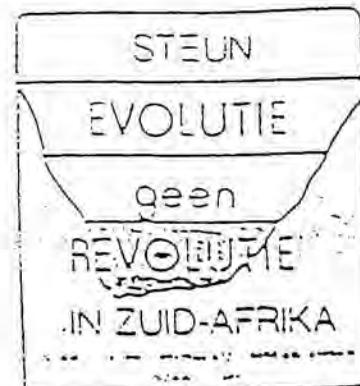 STEUN
EVOLUTIE
geen
REVOLUTIE
IN ZUID-AFRIKA